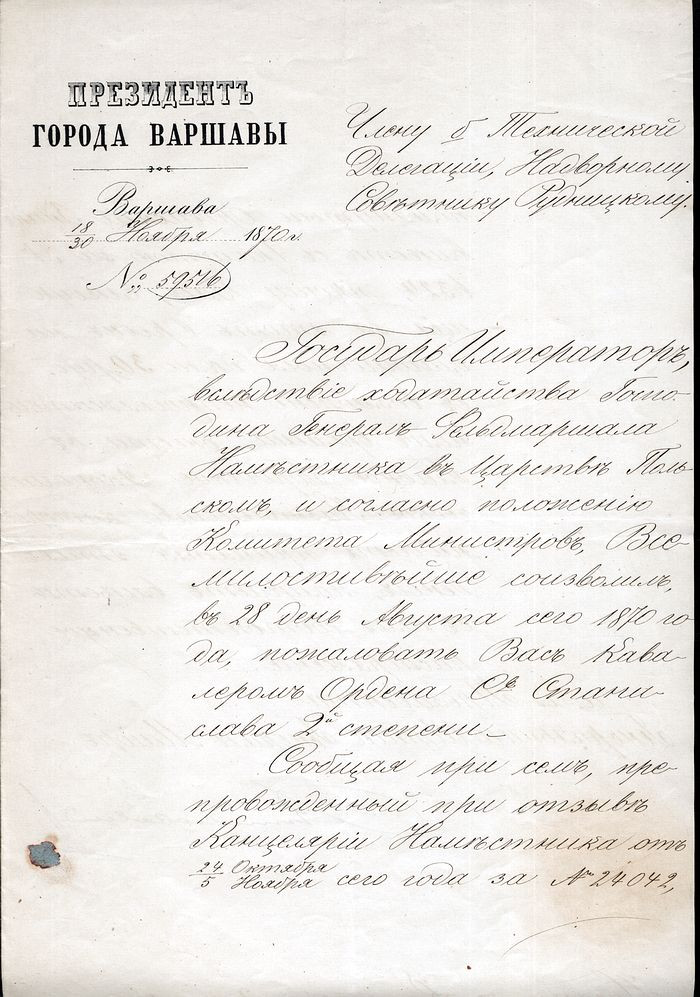 ПРЕЗИДЕНТЪ
ГОРОДА ВАРШАВЫ
Варшава
18/30 Ноября 1870 г.
№ 59516
Члену б Технической
Делегаціи, Надворному
Совѣтнику Рудницкому.
Государь Императоръ,
вслѣдствіе ходатайства Госпо-
дина Генералъ Фельдмаршала
Намѣстника въ Царствѣ Поль-
скомъ, и согласно положенію
Комитета Министровъ, Все-
милостивѣйше соизволилъ,
въ 28 день Августа сего 1870 го-
да, пожаловать Васъ Кава-
леромъ Ордена Св Стани-
слава 2й степени_
Сообщая при семъ, пре-
провожденный при отзывѣ
Канцеляріи Намѣстника отъ
24 Октября / 5 Ноября сего года за № 24042,